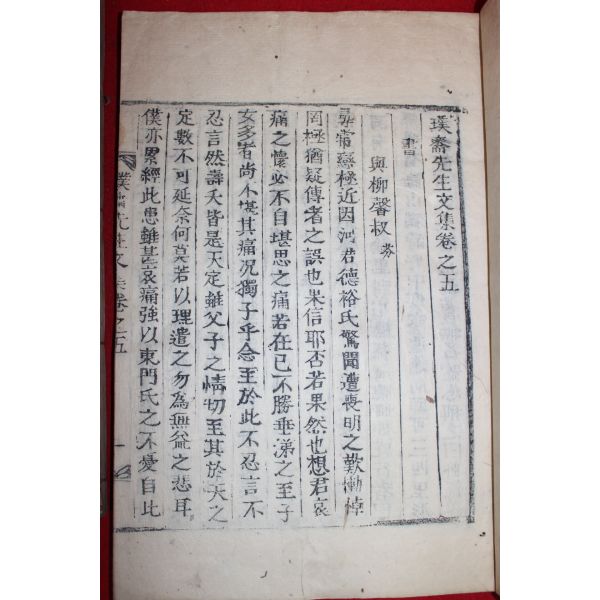 璞齋先生文集卷之五
書
與柳馨叔 芬
尋常戀極近因河君德裕氏驚聞遭喪明之歎慟悼
罔極猶疑傳者之誤也果信耶否若果然也想君哀
痛之懷必不自堪思之痛若在己不勝垂涕之至子
女多者尚不堪其痛况獨子乎念至於此不忍言不
忍言然壽夭皆是天定雖父子之情切至其於天之
定數不可延奈何莫若以理遣之勿爲無益之悲耳
僕亦累經此患雖甚哀痛強以東門氏之不憂自比
璞齋先生文集卷之五 一